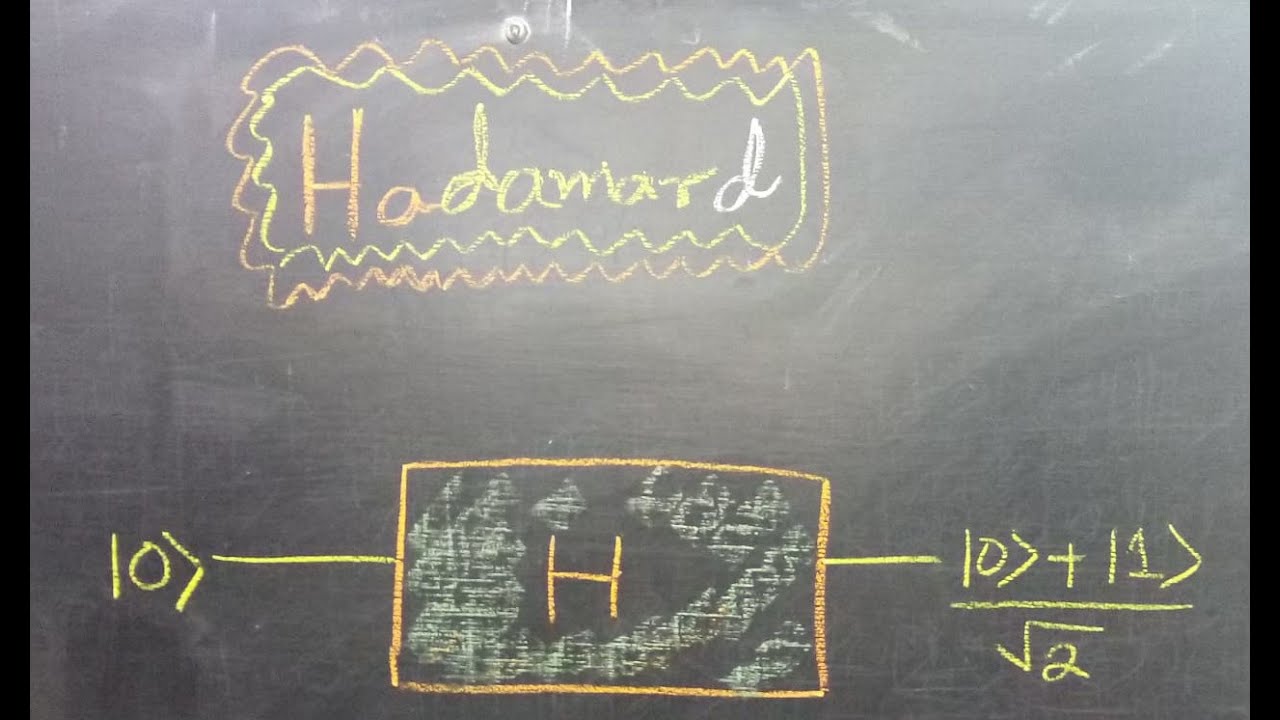 Hadamard
|0⟩ H |0⟩+|1⟩
√2